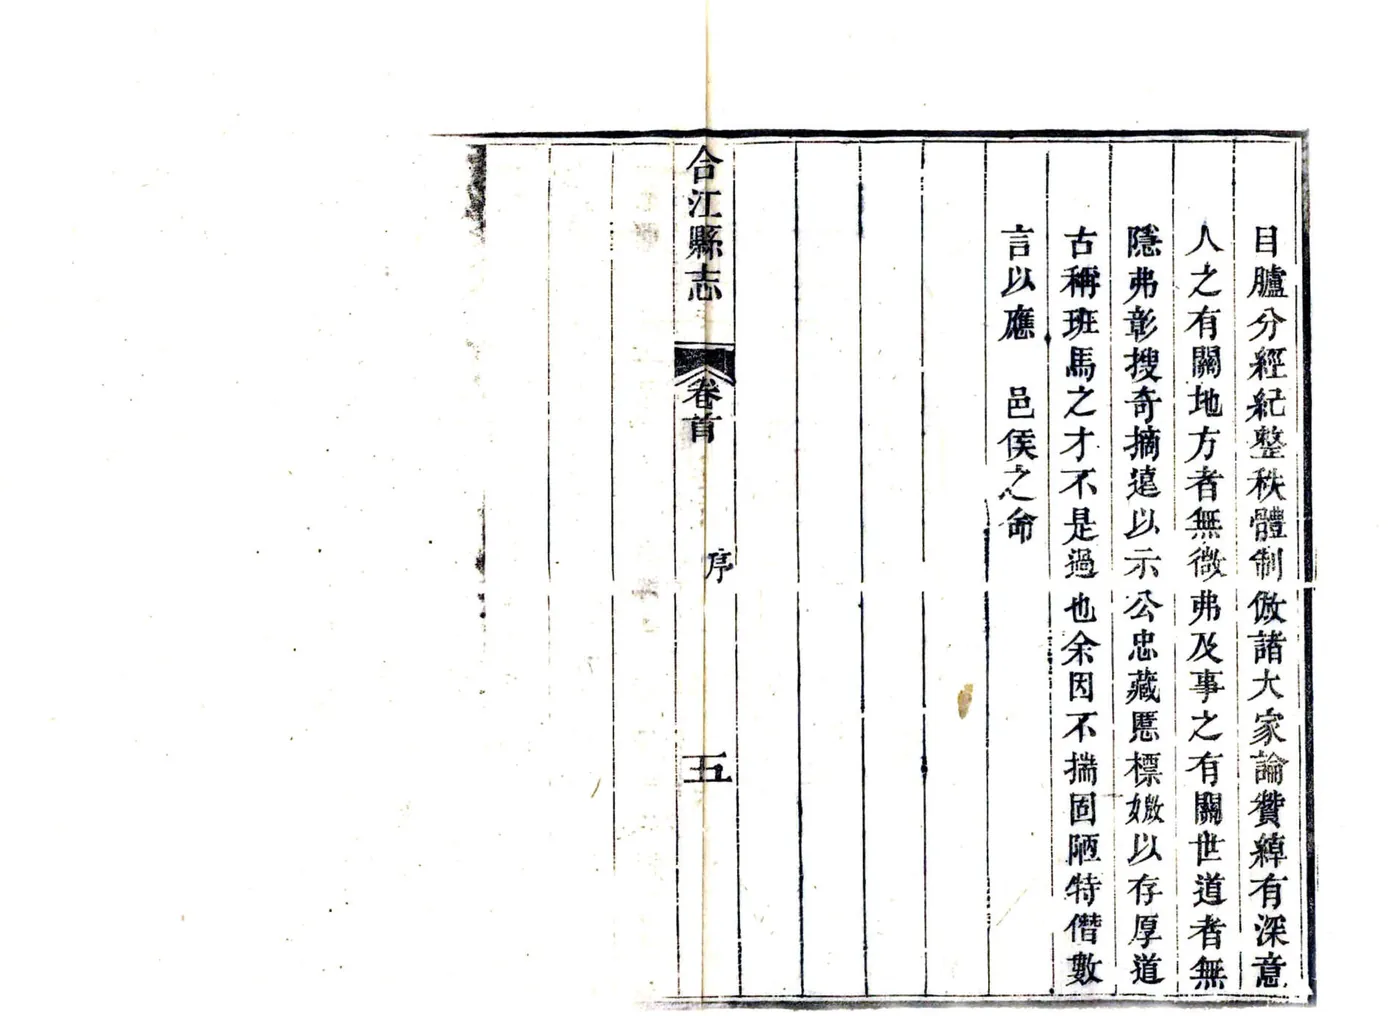 目臚分經紀整秩體制倣諸大家論贊綽有深意
人之有關地方者無微弗及事之有關世道者無
隱弗彰搜奇摘遠以示公忠藏慝標媺以存厚道
古稱班馬之才不是過也余因不揣固陋特僭數
言以應　邑侯之命
合江縣志　卷首　序　五